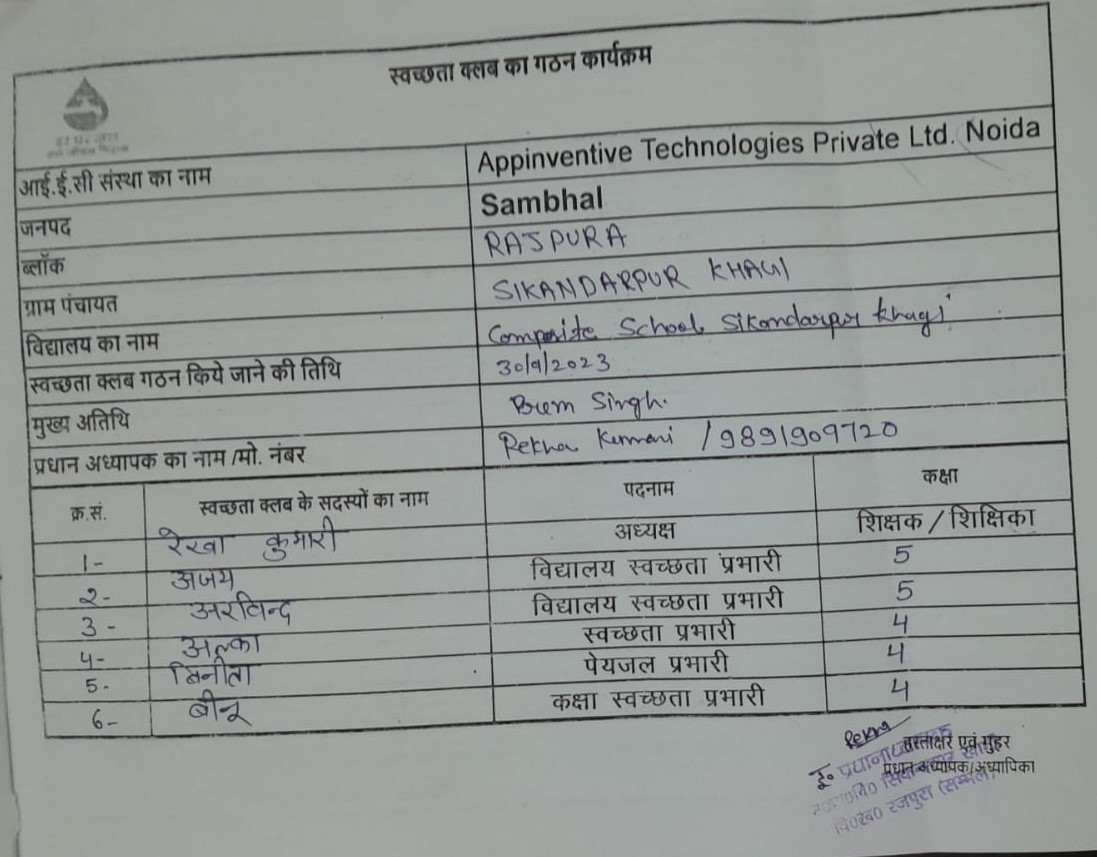 स्वच्छता क्लब का गठन कार्यक्रम
हर घर जल
जल जीवन मिशन
आई.ई.सी संस्था का नाम Appinventive Technologies Private Ltd. Noida
जनपद Sambhal
ब्लॉक RAJPURA
ग्राम पंचायत SIKANDARPUR KHAGI
विद्यालय का नाम Composite School Sikandarpur khagi
स्वच्छता क्लब गठन किये जाने की तिथि 30/9/2023
मुख्य अतिथि Prem Singh.
प्रधान अध्यापक का नाम /मो. नंबर Rekha Kumari / 9891909720
क्र.सं. स्वच्छता क्लब के सदस्यों का नाम पदनाम कक्षा
1- रेखा कुमारी अध्यक्ष शिक्षक / शिक्षिका
2- अजय विद्यालय स्वच्छता प्रभारी 5
3- अरविन्द विद्यालय स्वच्छता प्रभारी 5
4- अल्का स्वच्छता प्रभारी 4
5- विनीता पेयजल प्रभारी 4
6- बीनू कक्षा स्वच्छता प्रभारी 4
Rekha
हस्ताक्षर एवं मुहर
प्रधान अध्यापक/अध्यापिका
इं० प्रधानाध्यापक
वि०ख० रजपुरा (सम्भल)